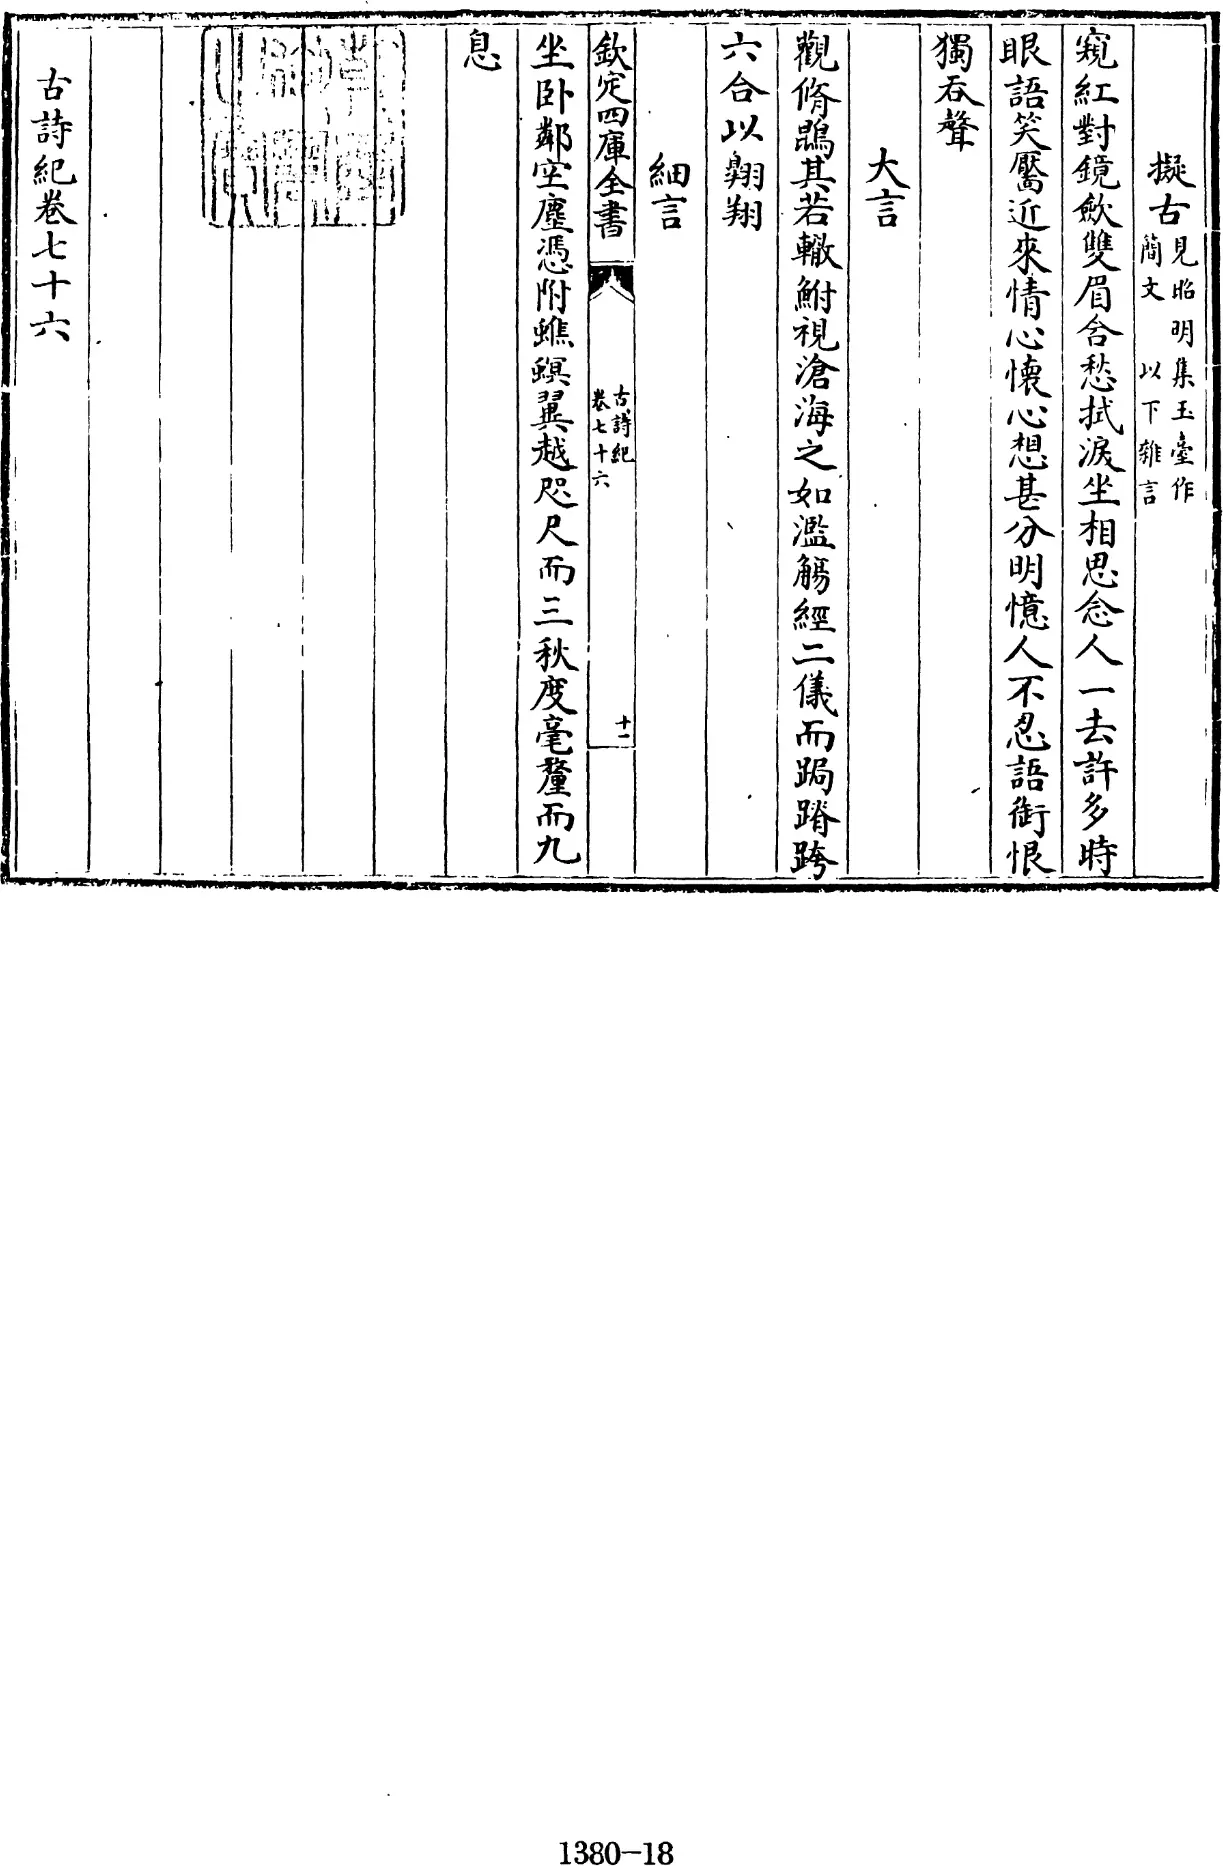 擬古見昭明集玉臺作簡文以下雜言
窺紅對鏡斂雙眉含愁拭淚坐相思念人一去許多時
眼語笑靨近來情心懷心想甚分明憶人不忍語銜恨
獨吞聲
大言
觀脩鵾其若轍鮒視滄海之如濫觴經二儀而跼蹐跨
六合以翺翔
細言
欽定四庫全書
古詩紀
卷七十六
十一
坐卧鄰空塵憑附蟭螟翼越咫尺而三秋度毫釐而九
息
古詩紀卷七十六
1380-18